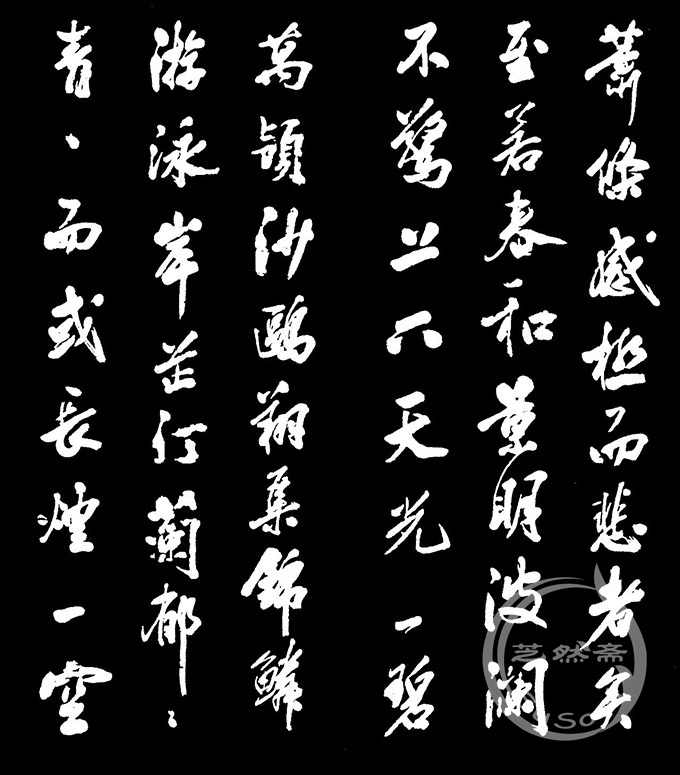 蕭條感極而悲者矣
至若春和景明波瀾
不驚上下天光一碧
萬頃沙鷗翔集錦鱗
游泳岸芷汀蘭郁〻
青〻而或長煙一空
芝然斋